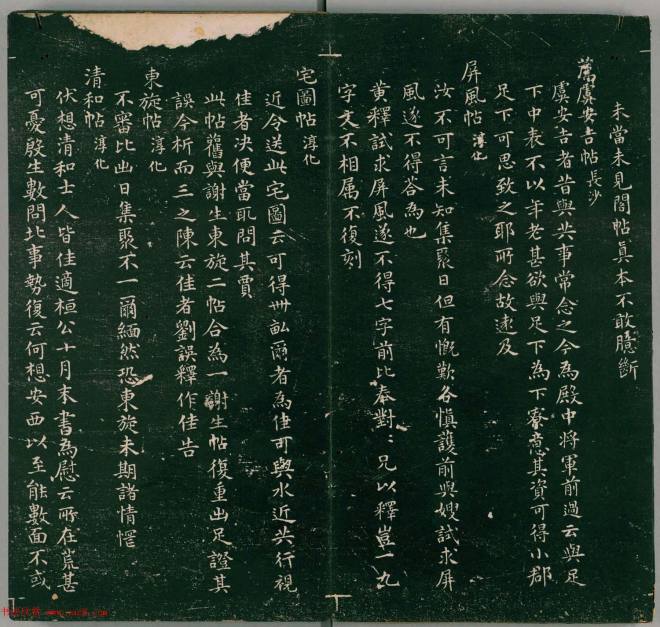 未當未見閣帖眞本不敢臆斷
薦虞安吉帖 長沙
虞安吉者昔與共事常念之今為殿中将軍前過云與足
下中表不以年老甚欲與足下為下寮意其資可得小郡
足下可思致之耶所念故速及
屏風帖 淳化
汝不可言未知集聚日但有慨歎各慎護前與嫂試求屏
風遂不得荅為也
黄釋試求屏風遂不得七字前比奉對〻兄以釋豈一九
字文不相属不復刻
宅圖帖 淳化
近令送此宅圖云可得卅畝爾者為佳可與水近共行視
佳者決便當取問其賈
此帖舊與謝生東旋二帖合為一謝生帖復重出足證其
誤今析而三之陳云佳者劉誤釋作佳告
東旋帖 淳化
不審比出日集聚不一爾緬然恐東旋未期諸情愊
清和帖 淳化
伏想清和士人皆佳適桓公十月末書為慰云所在荒甚
可憂殷生數問北事勢復云何想安西以至能數面不或